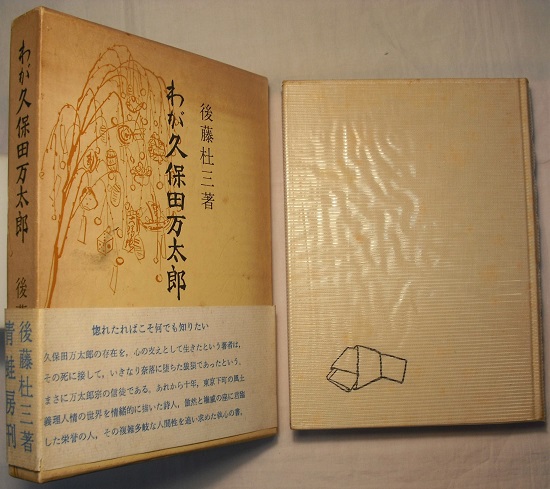 わが久保田万太郎
後藤
後藤杜三著
青蛙房刊
後藤杜三著
わが久保田万太郎
惚れたればこそ何でも知りたい
久保田万太郎の存在を、心の支えとして生きたという著者は、
その死に接して、いきなり奈落に堕ちた狼狽であったという。
まさに万太郎宗の信徒である。あれから十年、東京下町の風土
義理人情の世界を情緒的に描いた詩人、傲然と権威の座に君臨
した栄誉の人、その複雑多岐な人間性を追い求めた執心の書。